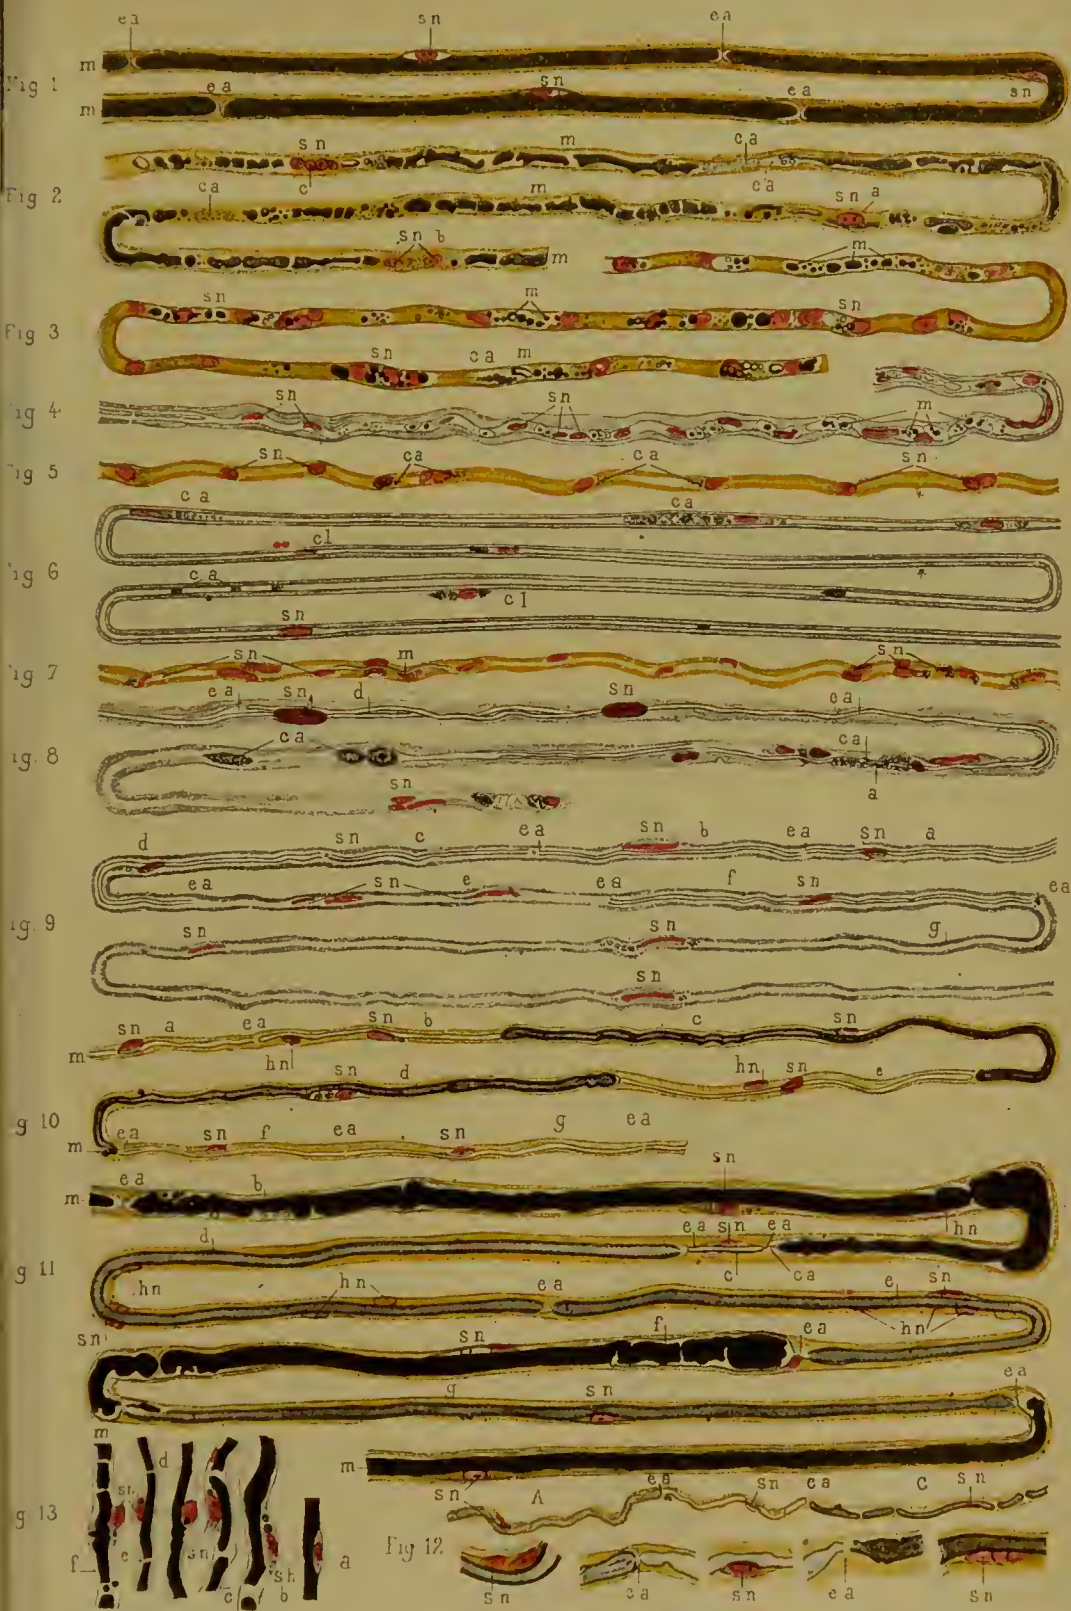 ea sn ea
m
Fig 1 ea sn ea sn
m
sn m ca
c ca
Fig 2 ca m sn a
sn b m m
sn m sn
Fig 3
sn ca m
Fig 4 sn sn m
Fig 5 sn ca ca sn
ca ca
cl
Fig 6 ca cl
sn
Fig 7 sn m sn
ea sn d sn ea
Fig. 8 ca ca
a
sn
d sn c ea sn b ea sn a
ea sn e ea f sn ea
Fig. 9
sn sn g
sn
sn a ea sn b c sn
m hn
sn d hn sn e
Fig 10
m ea sn f ea sn g ea
sn
m ea b hn
d ea sn ea
c ca
Fig 11 hn hn ea e sn
hn
sn sn f ea
g sn ea
m
m
d sn A ea sn ea C sn
sn
g 13
Fig 12
f e sn c sn b a
sn ea sn ea sn